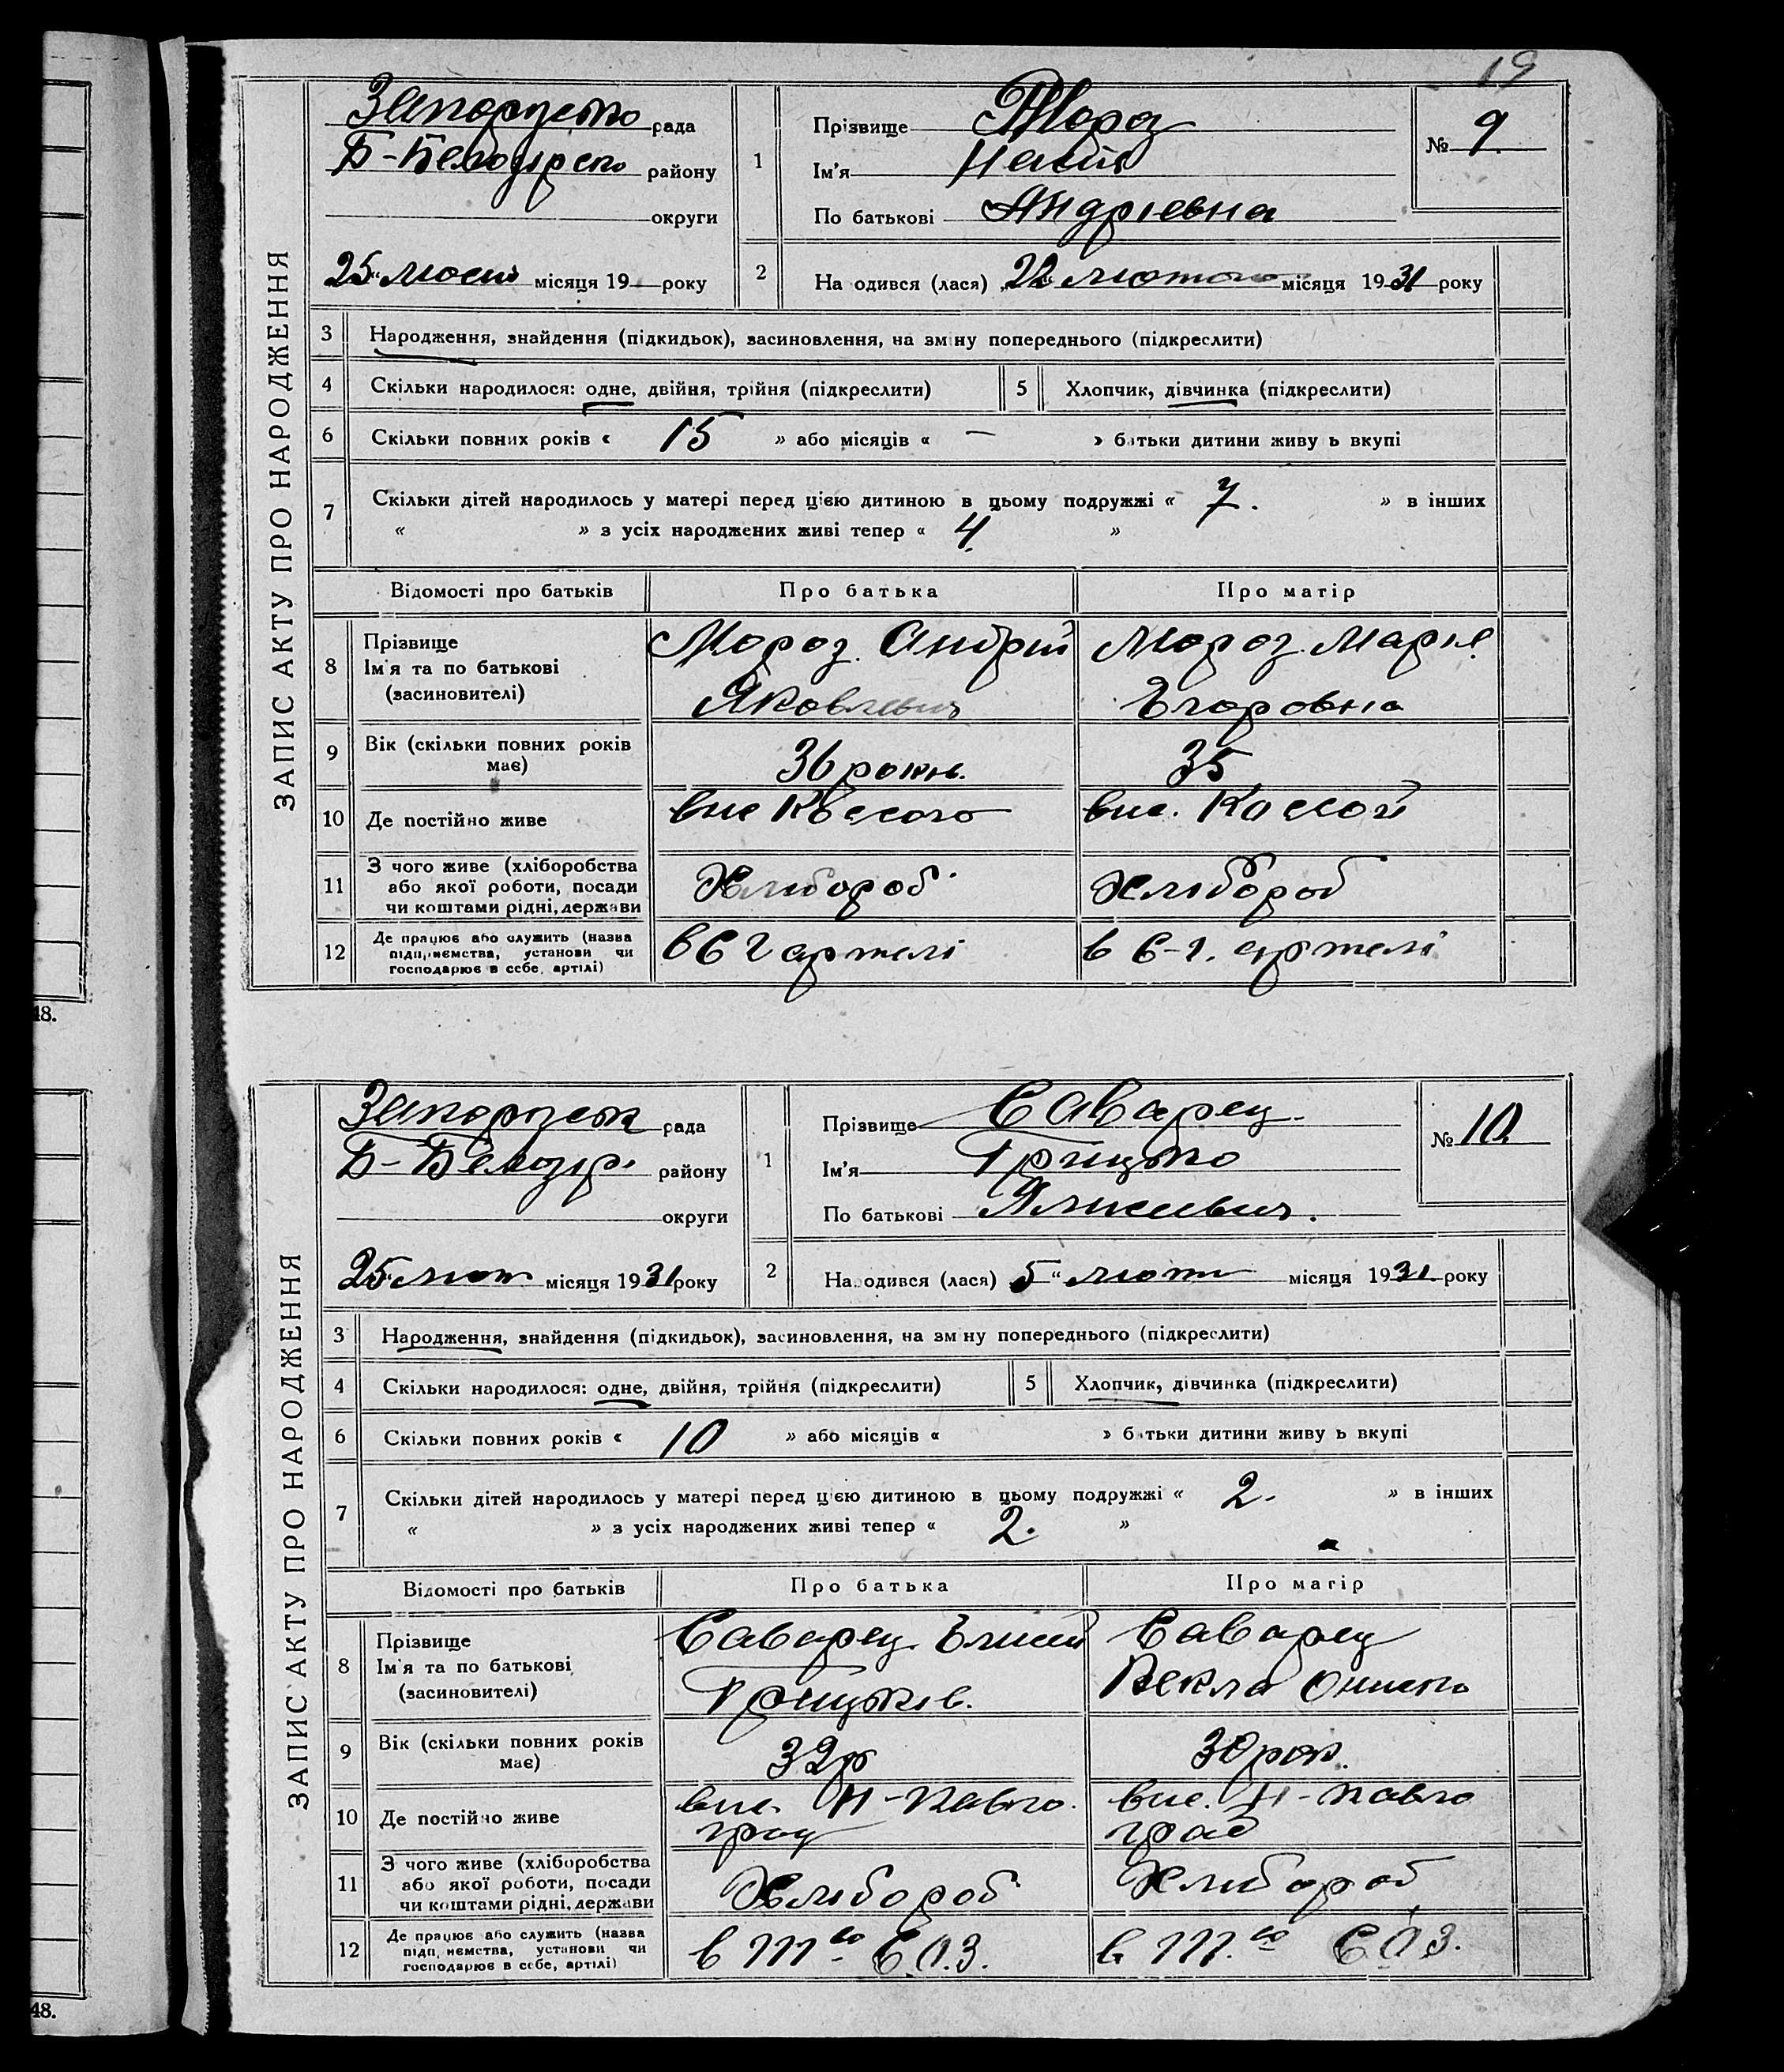 19
ЗАПИС АКТУ ПРО НАРОДЖЕННЯ
рада
Б- району
округи
25 місяця 19 року
1
Прізвище Мороз
Ім'я
По батькові Андріевна
№ 9
2
На одився (лася) 22 лютого місяця 1931 року
3 Народження, знайдення (підкидьок), засиновлення, на зміну попереднього (підкреслити)
4 Скільки народилося: одне, двійня, трійня (підкреслити)
5 Хлопчик, дівчинка (підкреслити)
6 Скільки повних років « 15 » або місяців « — » батьки дитини живу ь вкупі
7 Скільки дітей народилось у матері перед цією дитиною в цьому подружжі « 7. » в інших
« » з усіх народжених живі тепер « 4 »
Відомості про батьків Про батька Про матір
8 Прізвище
Ім'я та по батькові
(засиновителі)
Мороз Андрій
Яковлевич
Мороз Марія
Єгоровна
9 Вік (скільки повних років має) 36 35
10 Де постійно живе вис вис.
11 З чого живе (хліборобства або якої роботи, посади чи коштами рідні, держави Хлібороб Хлібороб
12 Де працює або служить (назва підприємства, установи чи господарює в себе, артілі) в С г артелі в С-г. артелі
48.
ЗАПИС АКТУ ПРО НАРОДЖЕННЯ
рада
Б- району
округи
25 лют місяця 1931 року
1
Прізвище Саварец
Ім'я Грицько
По батькові
№ 10
2
На одився (лася) 5 " місяця 1931 року
3 Народження, знайдення (підкидьок), засиновлення, на зм ну попереднього (підкреслити)
4 Скільки народилося: одне, двійня, трійня (підкреслити)
5 Хлопчик, дівчинка (підкреслити)
6 Скільки повних років « 10 » або місяців « » б тьки дитини живу ь вкупі
7 Скільки дітей народилось у матері перед цією дитиною в цьому подружжі « 2. » в інших
« » з усіх народжених живі тепер « 2. »
Відомості про батьків Про батька Про матір
8 Прізвище
Ім'я та по батькові
(засиновителі)
Саварец
Грицьків.
Саварец
Векла
9 Вік (скільки повних років має) 32 р 30 рок.
10 Де постійно живе вис. Н-Павло
град
вис. Н-Павло
град
11 З чого живе (хліборобства або якої роботи, посади чи коштами рідні, держави Хлібороб Хлібороб
12 Де працює або служить (назва підп иємства, установи чи господарює в себе, артілі) в С.О.З. в С.О.З.
48.